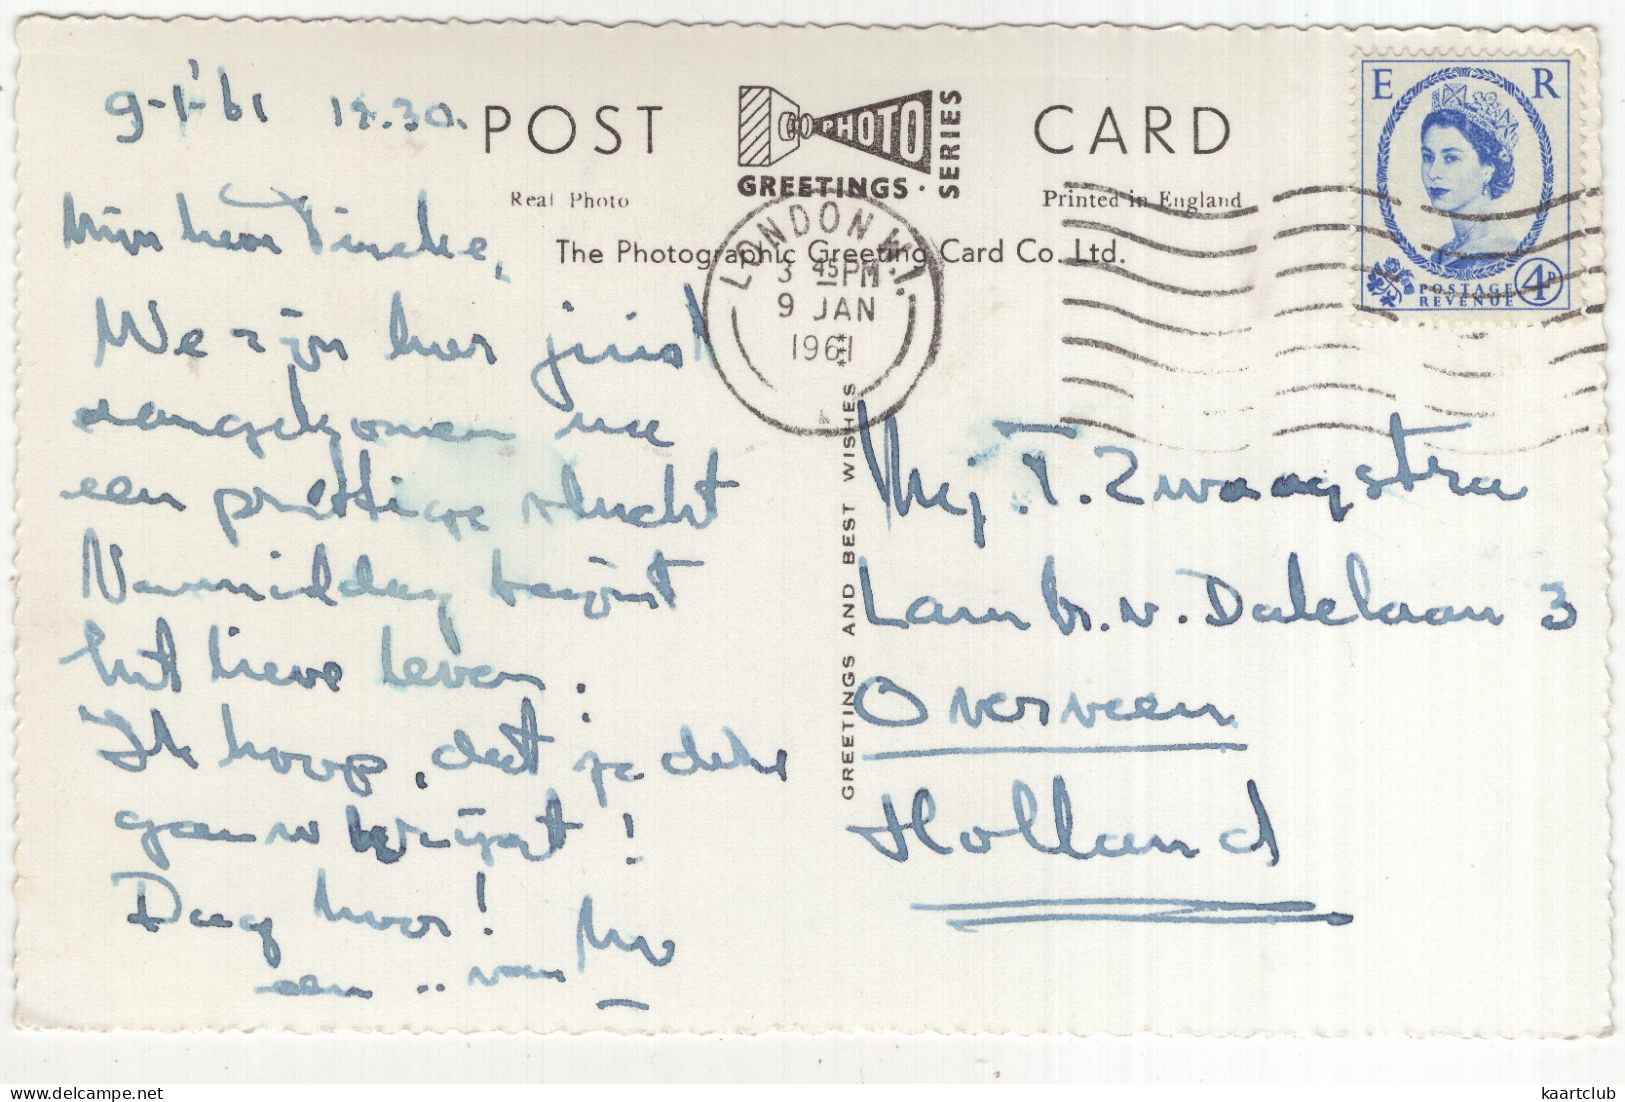 9-1-'61 12.30.
POST CARD
PHOTO
GREETINGS · SERIES
Real Photo
Printed in England
The Photographic Greeting Card Co. Ltd.
E R
POSTAGE
REVENUE
4D
LONDON W.1.
3 45 PM
9 JAN
1961
Mijn lieve Tineke,
We zijn hier juist
aangekomen na
een prettige vlucht
Vanmiddag begint
het lieve leven.
Ik hoop, dat je
gauw krijgt!
Dag hoor!
een .. van
GREETINGS AND BEST WISHES
Mej. T. Zwaagstra
Lambr. v. Dalelaan 3
Overveen
Holland
kaartclub